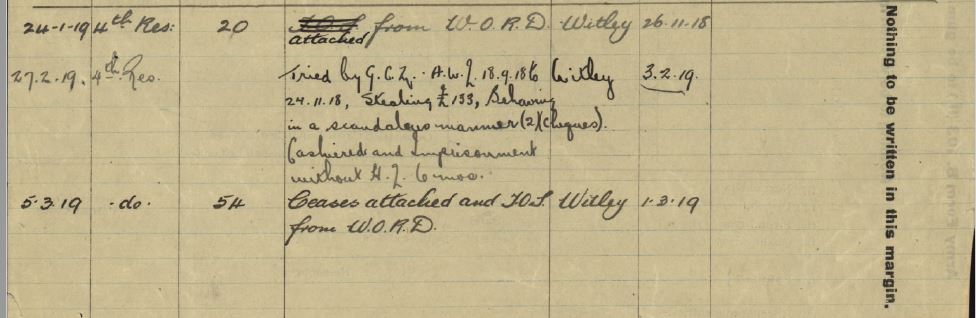 24-1-19 4th Res: 20 T.O.S. attached from W.O.R.D. Witley 26-11-18
27.2.19. 4th Res. Tried by G.C.M. A.W.L 18.9.18 to Witley 3.2.19.
24.11.18, Stealing £133, Behaving
in a scandalous manner (2)(cheques).
Cashiered and Imprisonment
without H.L 6 mos.
5.3.19 -do- 54 Ceases attached and TOS Witley 1-3-19
from W.O.R.D.
Nothing to be written in this margin.